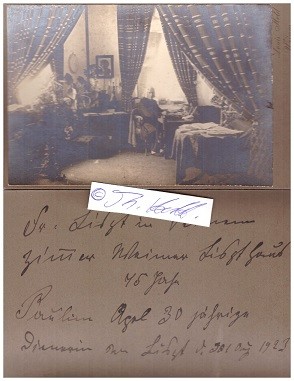 © Th. Keckl.
Dr. Liszt in seinem
Zimmer Weimar Liszthaus
75 Jahr
Pauline Apel 30 jährige
Dienerin von Liszt d. 28 Aug 1923